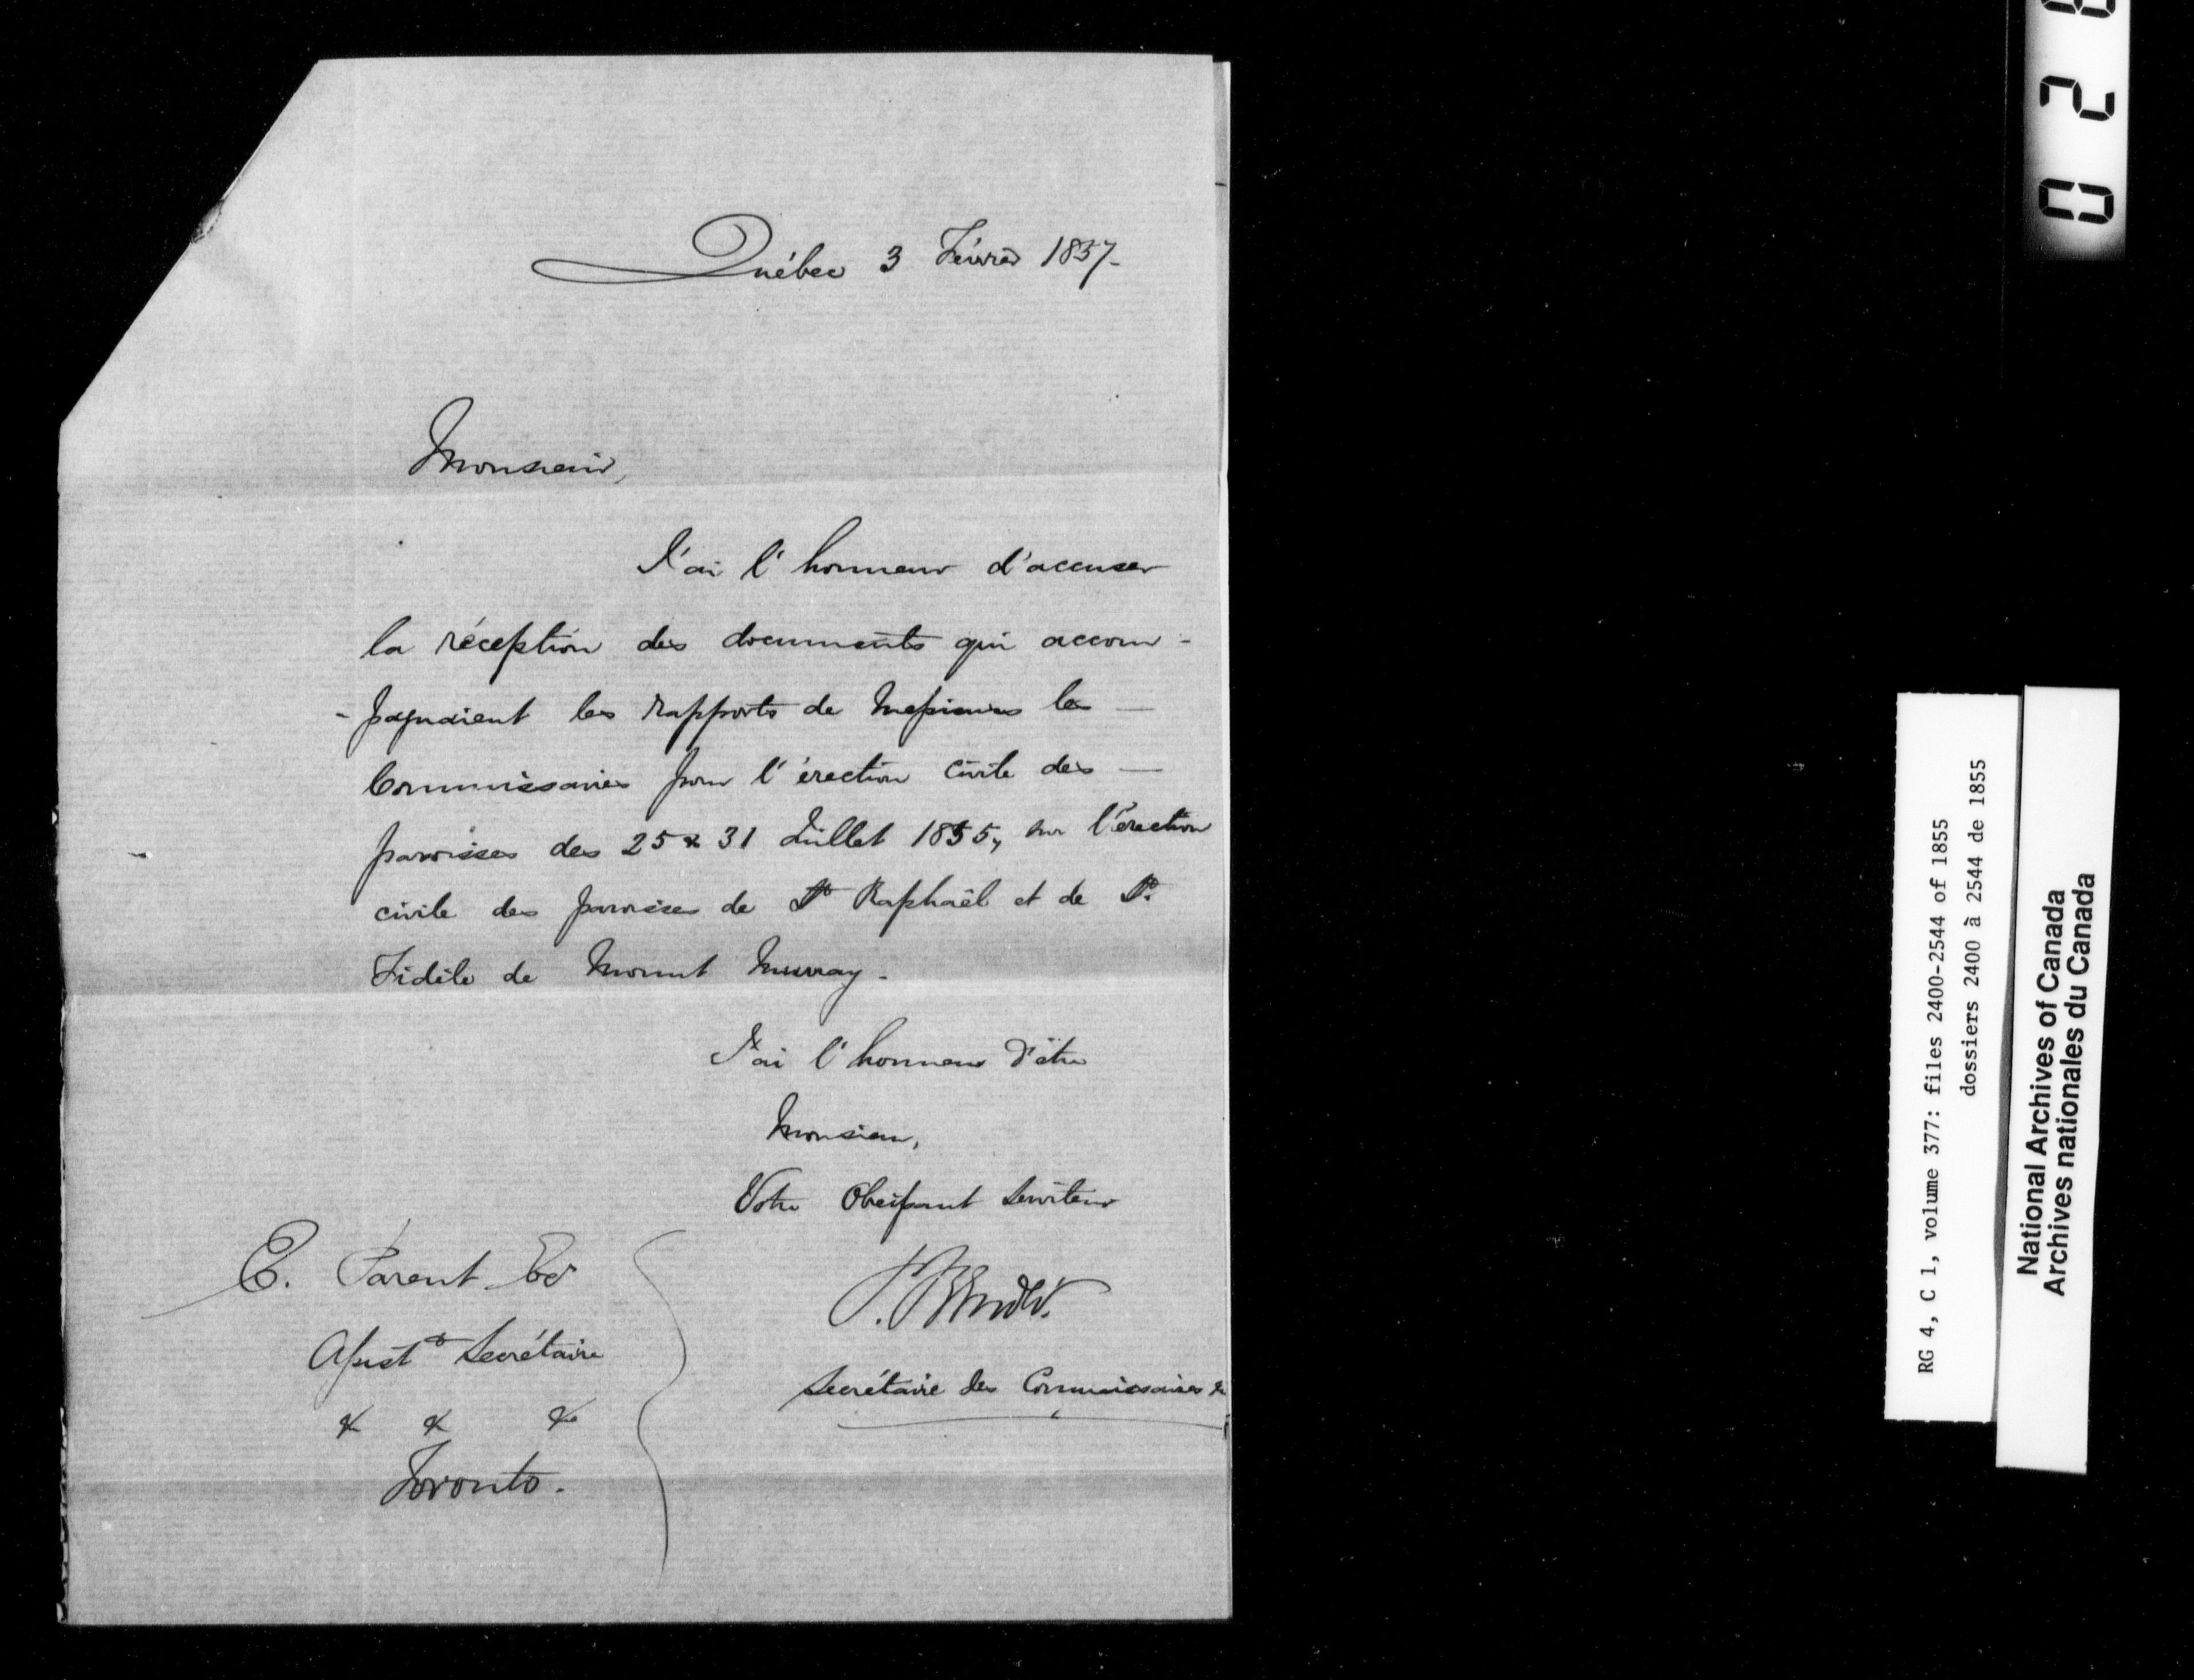 Québec 3 Février 1857-
Monsieur,
J'ai l'honneur d'accuser
la réception des documents qui accom-
-pagnaient les rapports de Messieurs les —
Commissaires pour l'érection civile des —
paroisses des 25 & 31 Juillet 1855, sur l'érection
civile des paroisses de St Raphaël et de St.
Fidèle de Mount Murray -
J'ai l'honneur d'être
Monsieur,
Votre Obeissant Serviteur
Secrétaire des Commissaires &
E. Parent
Assist Secrétaire
& & &
Toronto.
RG 4, C 1, volume 377: files 2400-2544 of 1855
dossiers 2400 à 2544 de 1855
National Archives of Canada
Archives nationales du Canada
0 2 8